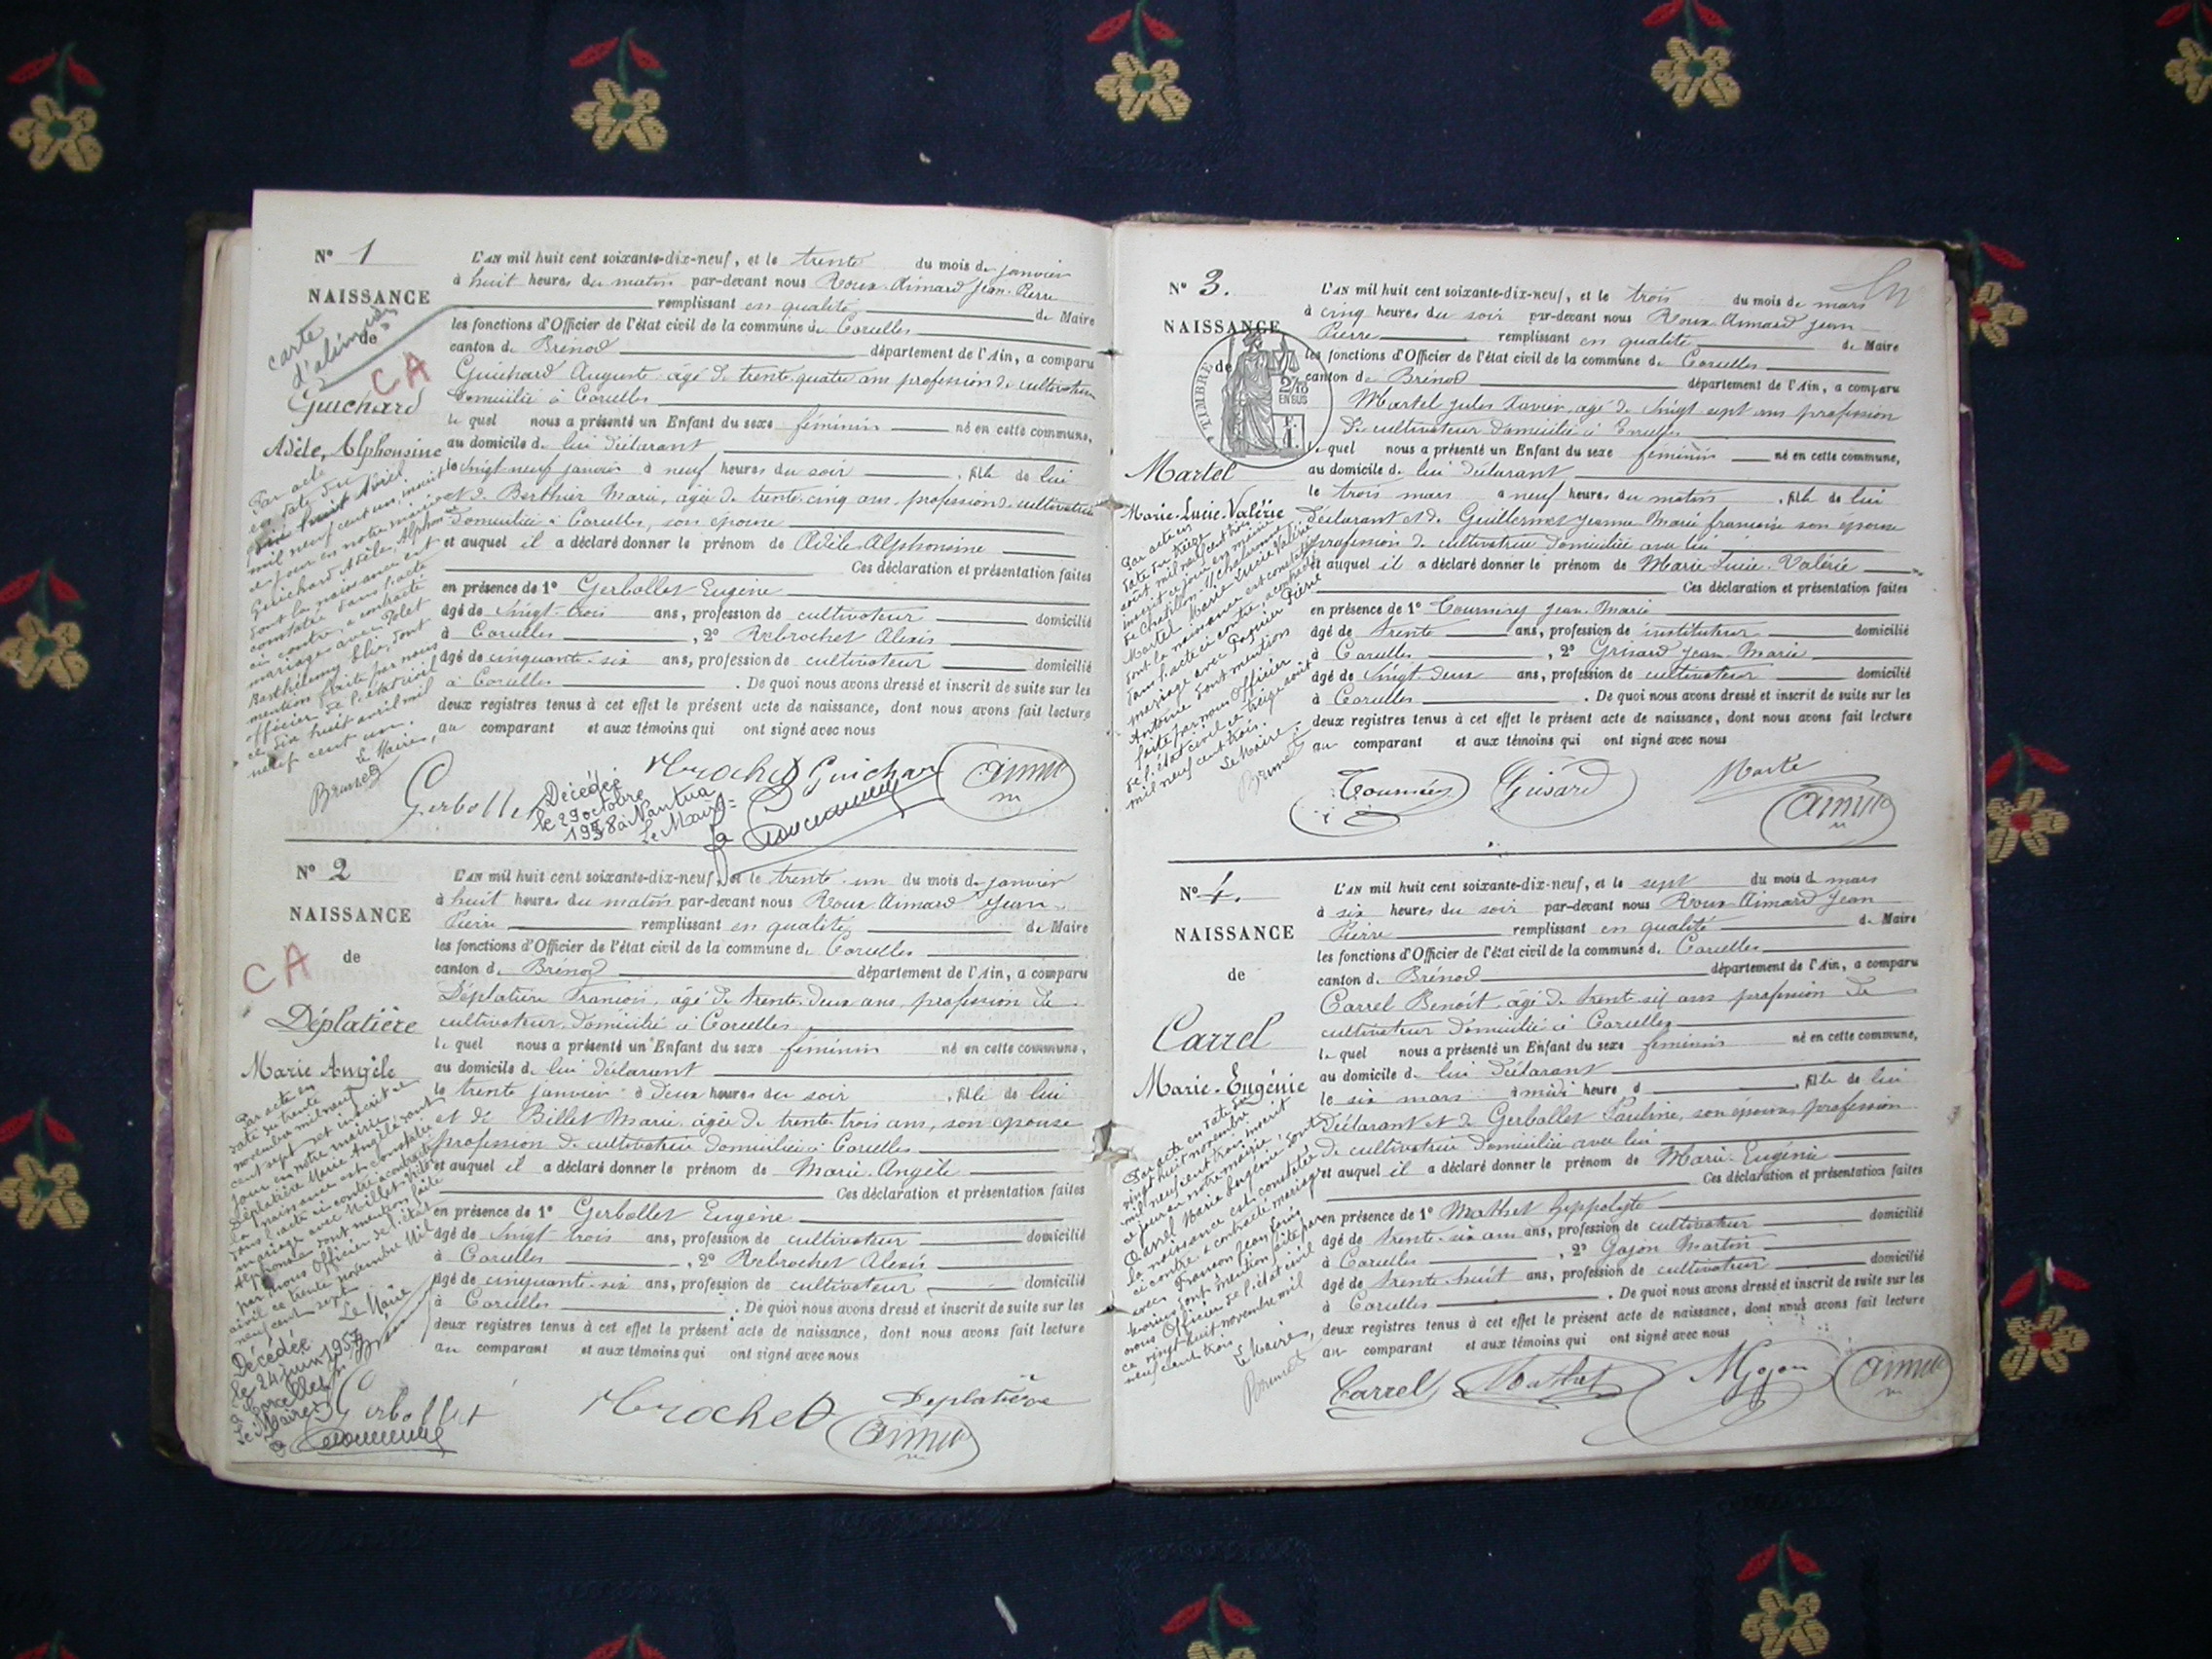 N° 1
NAISSANCE
de
carte
d'alimen
CA
Guichard
Adèle, Alphonsine
L'AN mil huit cent soixante-dix-neuf, et le trente du mois de janvier
à huit heures du matin par-devant nous Roux-Aimard Jean-Pierre
remplissant en qualité de Maire
les fonctions d'Officier de l'état civil de la commune de Corcelles
canton de Brénod département de l'Ain, a comparu
Guichard Auguste âgé de trente-quatre ans profession de cultivateur
domicilié à Corcelles
le quel nous a présenté un Enfant du sexe féminin né en cette commune,
au domicile de lui déclarant
le vingt neuf janvier à neuf heures du soir, fille de lui
et de Berthier Marie, âgée de trente-cinq ans, profession de cultivatrice
domiciliée à Corcelles, son épouse
et auquel il a déclaré donner le prénom de Adèle-Alphonsine
Ces déclaration et présentation faites
en présence de 1° Gerbollet Eugène
âgé de vingt-trois ans, profession de cultivateur domicilié
à Corcelles, 2° Rebrochet Alexis
âgé de cinquante-six ans, profession de cultivateur domicilié
à Corcelles. De quoi nous avons dressé et inscrit de suite sur les
deux registres tenus à cet effet le présent acte de naissance, dont nous avons fait lecture
au comparant et aux témoins qui ont signé avec nous
Par acte
en date du
dix huit Avril
mil neuf cent un, inscrit
ce jour en notre mairie
Guichard Adèle, Alphonsine
dont la naissance est
constatée dans l'acte
ci contre, a contracté
mariage avec Polet
Barthélemy Elie, dont
mention faite par nous
officier de l'état civil
ce dix huit avril mil
neuf cent un.
Le Maire,
Brunet
Gerbollet
Rebrochet
Guichard
Aimard
Décédée
le 29 octobre
1958 à Nantua
Le Maire
N° 2
NAISSANCE
de
CA
Déplatière
Marie Angèle
L'AN mil huit cent soixante-dix-neuf, et le trente-un du mois de janvier
à huit heures du matin par-devant nous Roux-Aimard Jean-
Pierre remplissant en qualité de Maire
les fonctions d'Officier de l'état civil de la commune de Corcelles
canton de Brénod département de l'Ain, a comparu
Déplatière François, âgé de trente-deux ans, profession de
cultivateur, domicilié à Corcelles
le quel nous a présenté un Enfant du sexe féminin né en cette commune,
au domicile de lui déclarant
le trente janvier à deux heures du soir, fille de lui
et de Billet Marie, âgée de trente-trois ans, son épouse
profession de cultivatrice domiciliée à Corcelles
et auquel il a déclaré donner le prénom de Marie-Angèle
Ces déclaration et présentation faites
en présence de 1° Gerbollet Eugène
âgé de vingt-trois ans, profession de cultivateur domicilié
à Corcelles, 2° Rebrochet Alexis
âgé de cinquante-six ans, profession de cultivateur domicilié
à Corcelles. De quoi nous avons dressé et inscrit de suite sur les
deux registres tenus à cet effet le présent acte de naissance, dont nous avons fait lecture
au comparant et aux témoins qui ont signé avec nous
Par acte en
date du trente
novembre mil neuf
cent sept et inscrit ce
jour en notre mairie,
Déplatière Marie Angèle dont
la naissance est constatée
dans l'acte ci contre a contracté
mariage avec Millet
Alphonse dont mention faite
par nous Officier de l'état
civil ce trente novembre mil
neuf cent sept
Le Maire
Décédée
le 24 juin 1957
à Corcelles
Le Maire
Gerbollet
Rebrochet
Deplatière
Aimard
N° 3.
NAISSANCE
de
TIMBRE
2/10
EN SUS
1 F.
Martel
Marie-Lucie-Valérie
L'AN mil huit cent soixante-dix-neuf, et le trois du mois de mars
à cinq heures du soir par-devant nous Roux-Aimard Jean-
Pierre remplissant en qualité de Maire
les fonctions d'Officier de l'état civil de la commune de Corcelles
canton de Brénod département de l'Ain, a comparu
Martel Jules Xavier, âgé de vingt sept ans profession
de cultivateur domicilié à Corcelles
le quel nous a présenté un Enfant du sexe féminin né en cette commune,
au domicile de lui déclarant
le trois mars à neuf heures du matin, fille de lui
déclarant et de Guillermet Jeanne-Marie françoise son épouse
profession de cultivatrice domiciliée avec lui
et auquel il a déclaré donner le prénom de Marie-Lucie-Valérie
Ces déclaration et présentation faites
en présence de 1° Tournisy Jean-Marie
âgé de trente ans, profession de instituteur domicilié
à Corcelles, 2° Grisard Jean-Marie
âgé de vingt-deux ans, profession de cultivateur domicilié
à Corcelles. De quoi nous avons dressé et inscrit de suite sur les
deux registres tenus à cet effet le présent acte de naissance, dont nous avons fait lecture
au comparant et aux témoins qui ont signé avec nous
Par acte en
date du treize
août mil neuf cent trois
inscrit ce jour en mairie
de Chatillon
Martel Marie Lucie Valérie
dont la naissance est constatée
dans l'acte ci contre, a contracté
mariage avec Pierre
Antoine dont mention
faite par nous Officier
de l'état civil ce treize août
mil neuf cent trois.
Le Maire,
Brunet
Grisard
Martel
Aimard
N° 4.
NAISSANCE
de
Carrel
Marie-Eugénie
L'AN mil huit cent soixante-dix-neuf, et le sept du mois de mars
à six heures du soir par-devant nous Roux-Aimard Jean
Pierre remplissant en qualité de Maire
les fonctions d'Officier de l'état civil de la commune de Corcelles
canton de Brénod département de l'Ain, a comparu
Carrel Benoit, âgé de trente-six ans profession de
cultivateur domicilié à Corcelles
le quel nous a présenté un Enfant du sexe féminin né en cette commune,
au domicile de lui déclarant
le six mars à midi heure d, fille de lui
déclarant et de Gerbollet Pauline, son épouse, profession
de cultivatrice domiciliée avec lui
et auquel il a déclaré donner le prénom de Marie-Eugénie
Ces déclaration et présentation faites
en présence de 1° Mathet Hippolyte
âgé de trente-six ans ans, profession de cultivateur domicilié
à Corcelles, 2° Gojon Martin
âgé de trente-huit ans, profession de cultivateur domicilié
à Corcelles. De quoi nous avons dressé et inscrit de suite sur les
deux registres tenus à cet effet le présent acte de naissance, dont nous avons fait lecture
au comparant et aux témoins qui ont signé avec nous
Par acte en date du
vingt huit novembre
mil neuf cent trois, inscrit
ce jour en notre mairie,
Carrel Marie Eugénie dont
la naissance est constatée
ci contre a contracté mariage
avec Françon Jean Louis
dont mention faite par
nous Officier de l'état civil
ce vingt huit novembre mil
neuf cent trois
Le Maire,
Brunet
Carrel
Mathet
M Gojon
Aimard